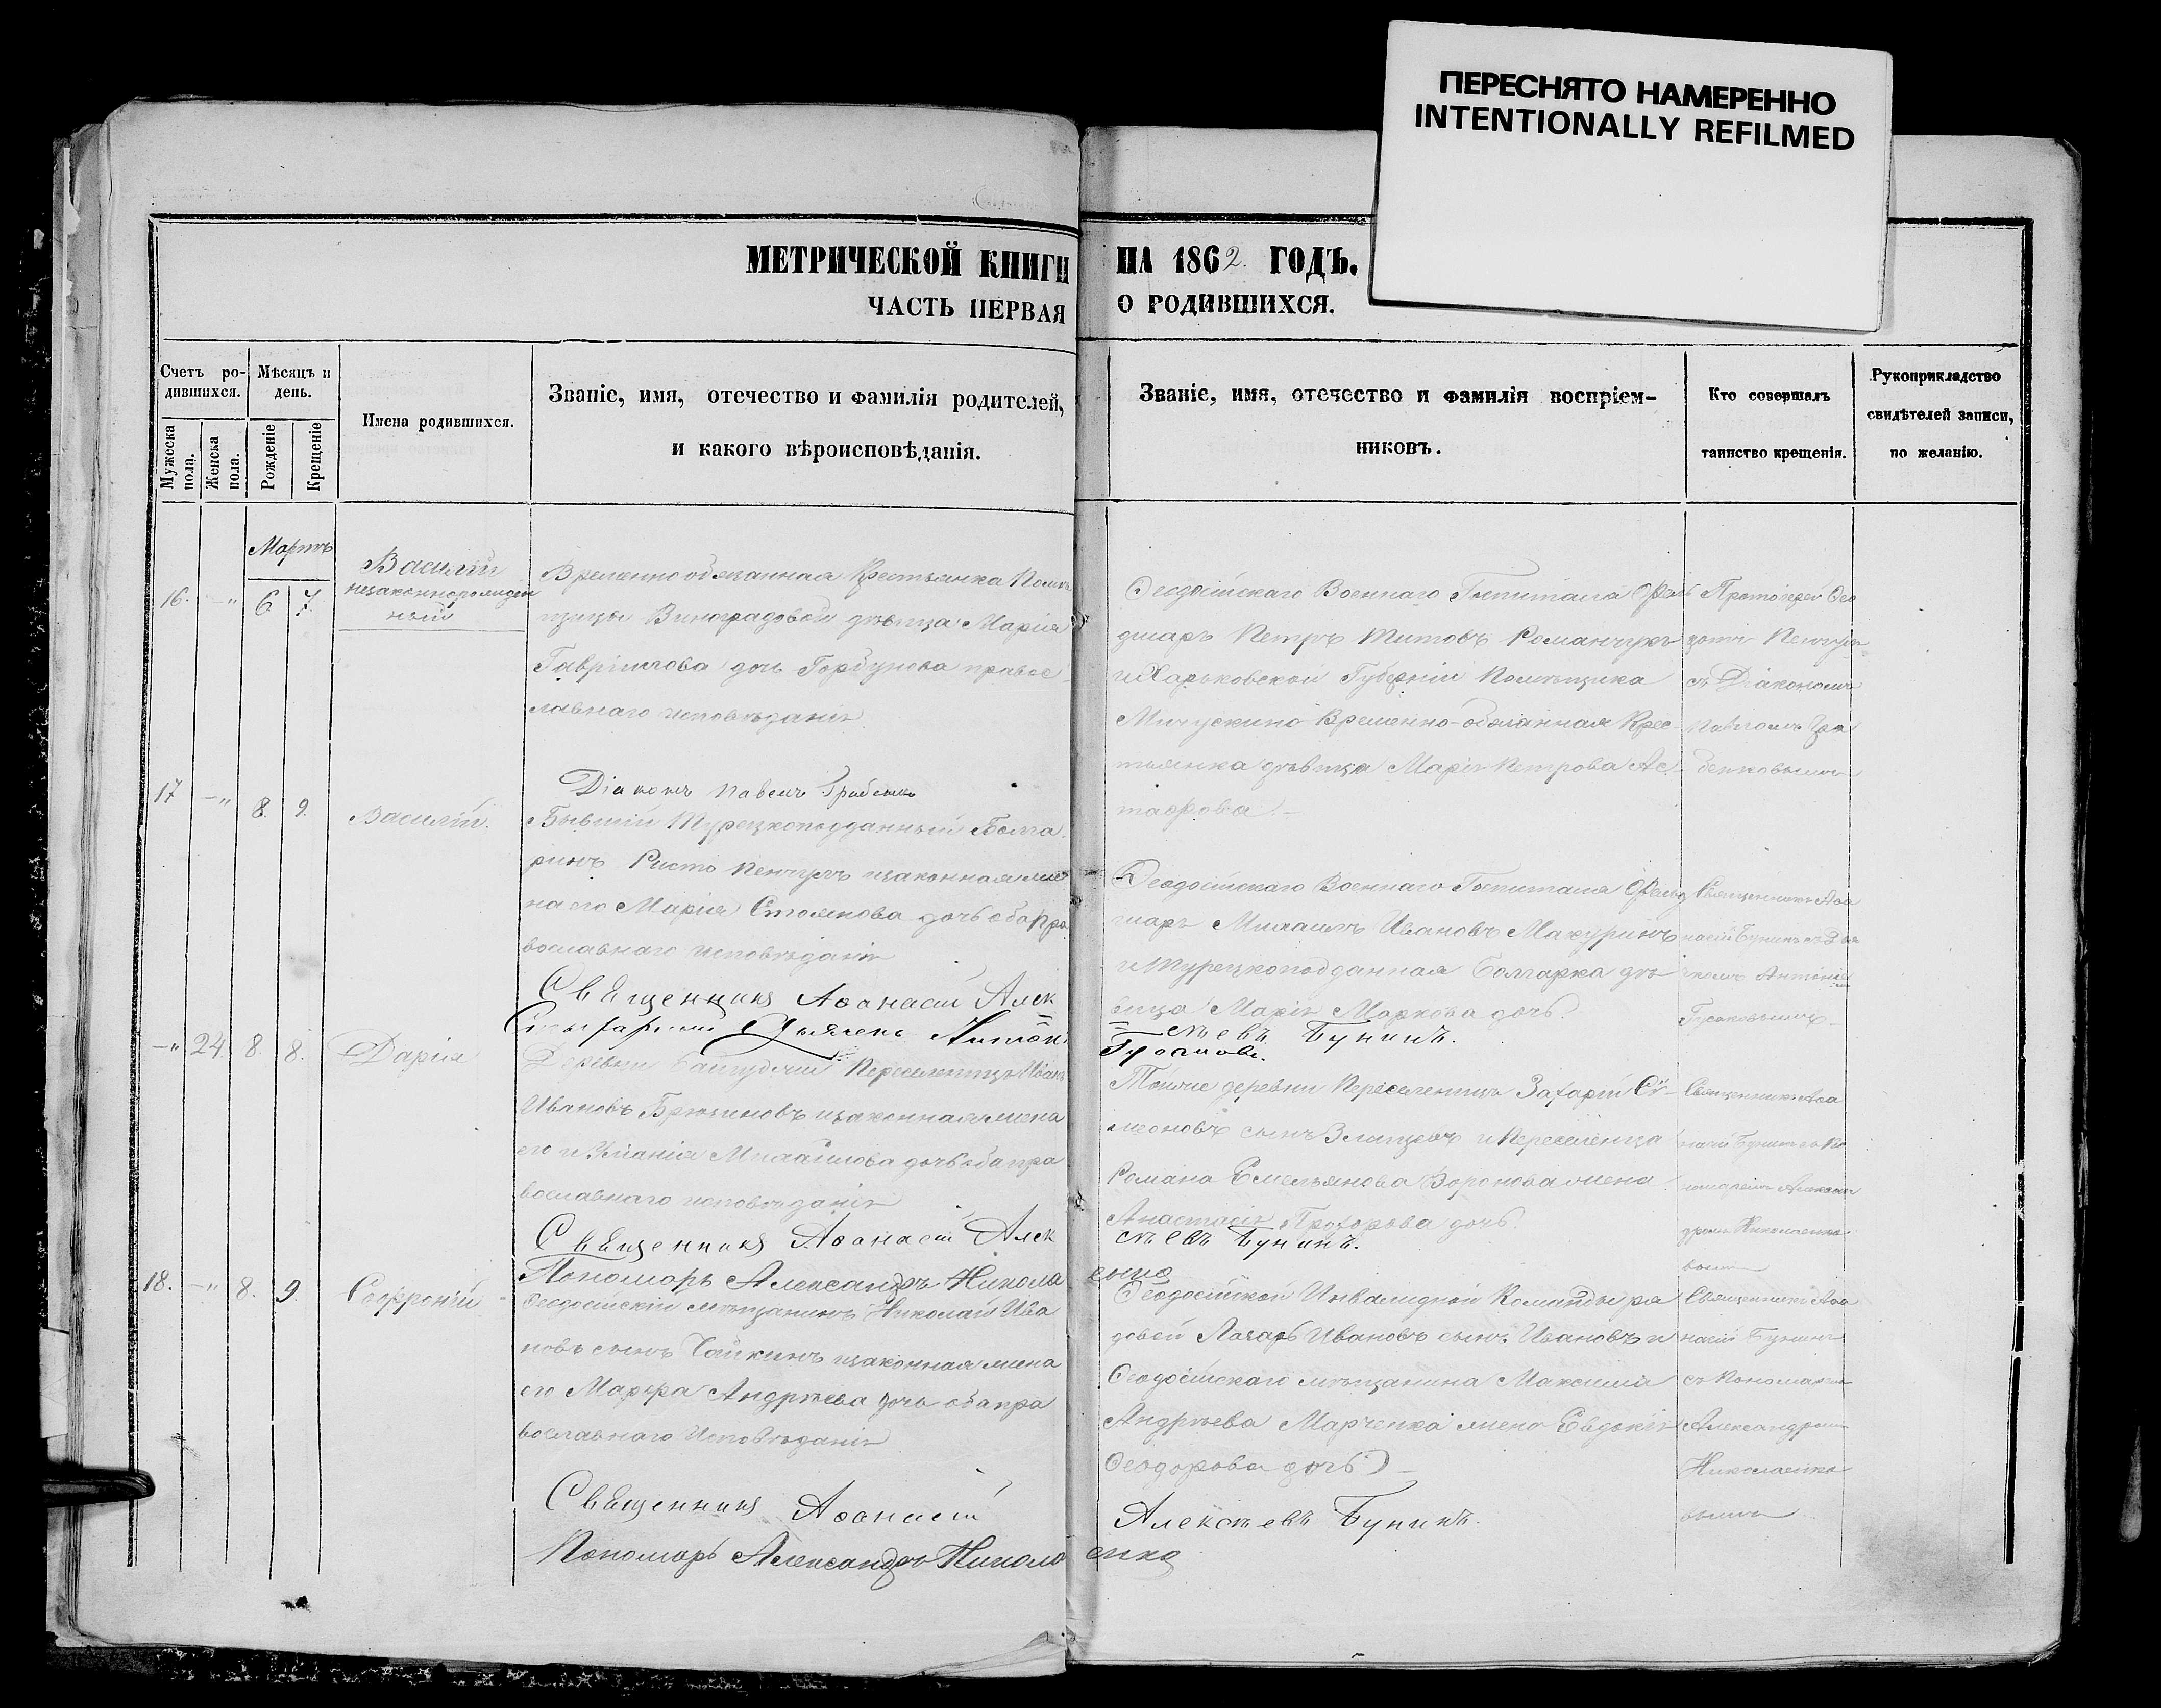 ПЕРЕСНЯТО НАМЕРЕННО
INTENTIONALLY REFILMED
МЕТРИЧЕСКОЙ КНИГИ НА 1862. ГОДЪ.
ЧАСТЬ ПЕРВАЯ О РОДИВШИХСЯ.
Счетъ ро-
дившихся.
Мужеска
пола.
Женска
пола.
Мѣсяцъ и
день.
Рожденіе
Крещеніе
Имена родившихся.
Званіе, имя, отечество и фамилія родителей,
и какого вѣроисповѣданія.
Званіе, имя, отечество и фамилія воспріем-
никовъ.
Кто совершалъ
таинство крещенія.
Рукоприкладство
свидѣтелей записи,
по желанію.
Мартъ
16. -„ 6. 7.
Василій
незаконнорожден
ный
Временно обязанная Крестьянка Помѣ
щицы Виноградовой дѣвица Марія
Гавріилова дочь Горбунова правос
лавнаго исповѣданія
Ѳеодосійскаго Военнаго Госпиталя Фель
дшаръ Петръ Титовъ Романчукъ
и Харьковской Губерніи Помѣщика
Временно-обязанная Крес-
тьянка дѣвица Марія Петрова
Протоіерей
съ Діакономъ
Павломъ
Діаконъ Павелъ
17 -„ 8. 9.
Василій.
Бывшій Турецкоподданный Болга
ринъ Ристо изаконная же
на его Марія Стоянова дочь оба пра
вославнаго исповѣданія
Ѳеодосійскаго Военнаго Госпиталя Фельд
шаръ Михаилъ Ивановъ Макуринъ
и Турецкоподданная Болгарка дѣ
вица Марія Маркова дочь.
Священникъ Аѳа
насій Бунинъ
Священникъ Аѳанасій Алек
сѣевъ Бунинъ.
-„ 24. 8. 8.
Дарія
Деревни Переселенецъ Иванъ
Ивановъ изаконная жена
его Михайлова дочь оба пра
вославнаго исповѣданія
Тойже деревни Переселенецъ Захарій Си-
меоновъ сынъ и Переселенца
Романа Емельянова Воронова жена
Анастасія Прохорова дочь.
Священникъ Аѳа
насій Бунинъ съ По
номаремъ Алексан
дромъ Николаенко
вымъ
Священникъ Аѳанасій Алек
сѣевъ Бунинъ.
Пономарь Александръ Никола
енко
18. -„ 8. 9.
Софроній
Ѳеодосійскій мѣщанинъ Николай Ива
новъ сынъ Чайкинъ изаконная жена
его Марѳа Андреева дочь оба пра
вославнаго Исповѣданія
Ѳеодосійской Инвалидной Команды ря
довой Лазарь Ивановъ сынъ Ивановъ и
Ѳеодосійскаго мѣщанина Максима
Андреева Марченка жена Евдокія
Ѳеодорова дочь
Священникъ Аѳа
насій Бунинъ
съ Пономаремъ
Александромъ
Николаенко
вымъ
Священникъ Аѳанасій
Алексѣевъ Бунинъ.
Пономарь Александръ Никола
енко